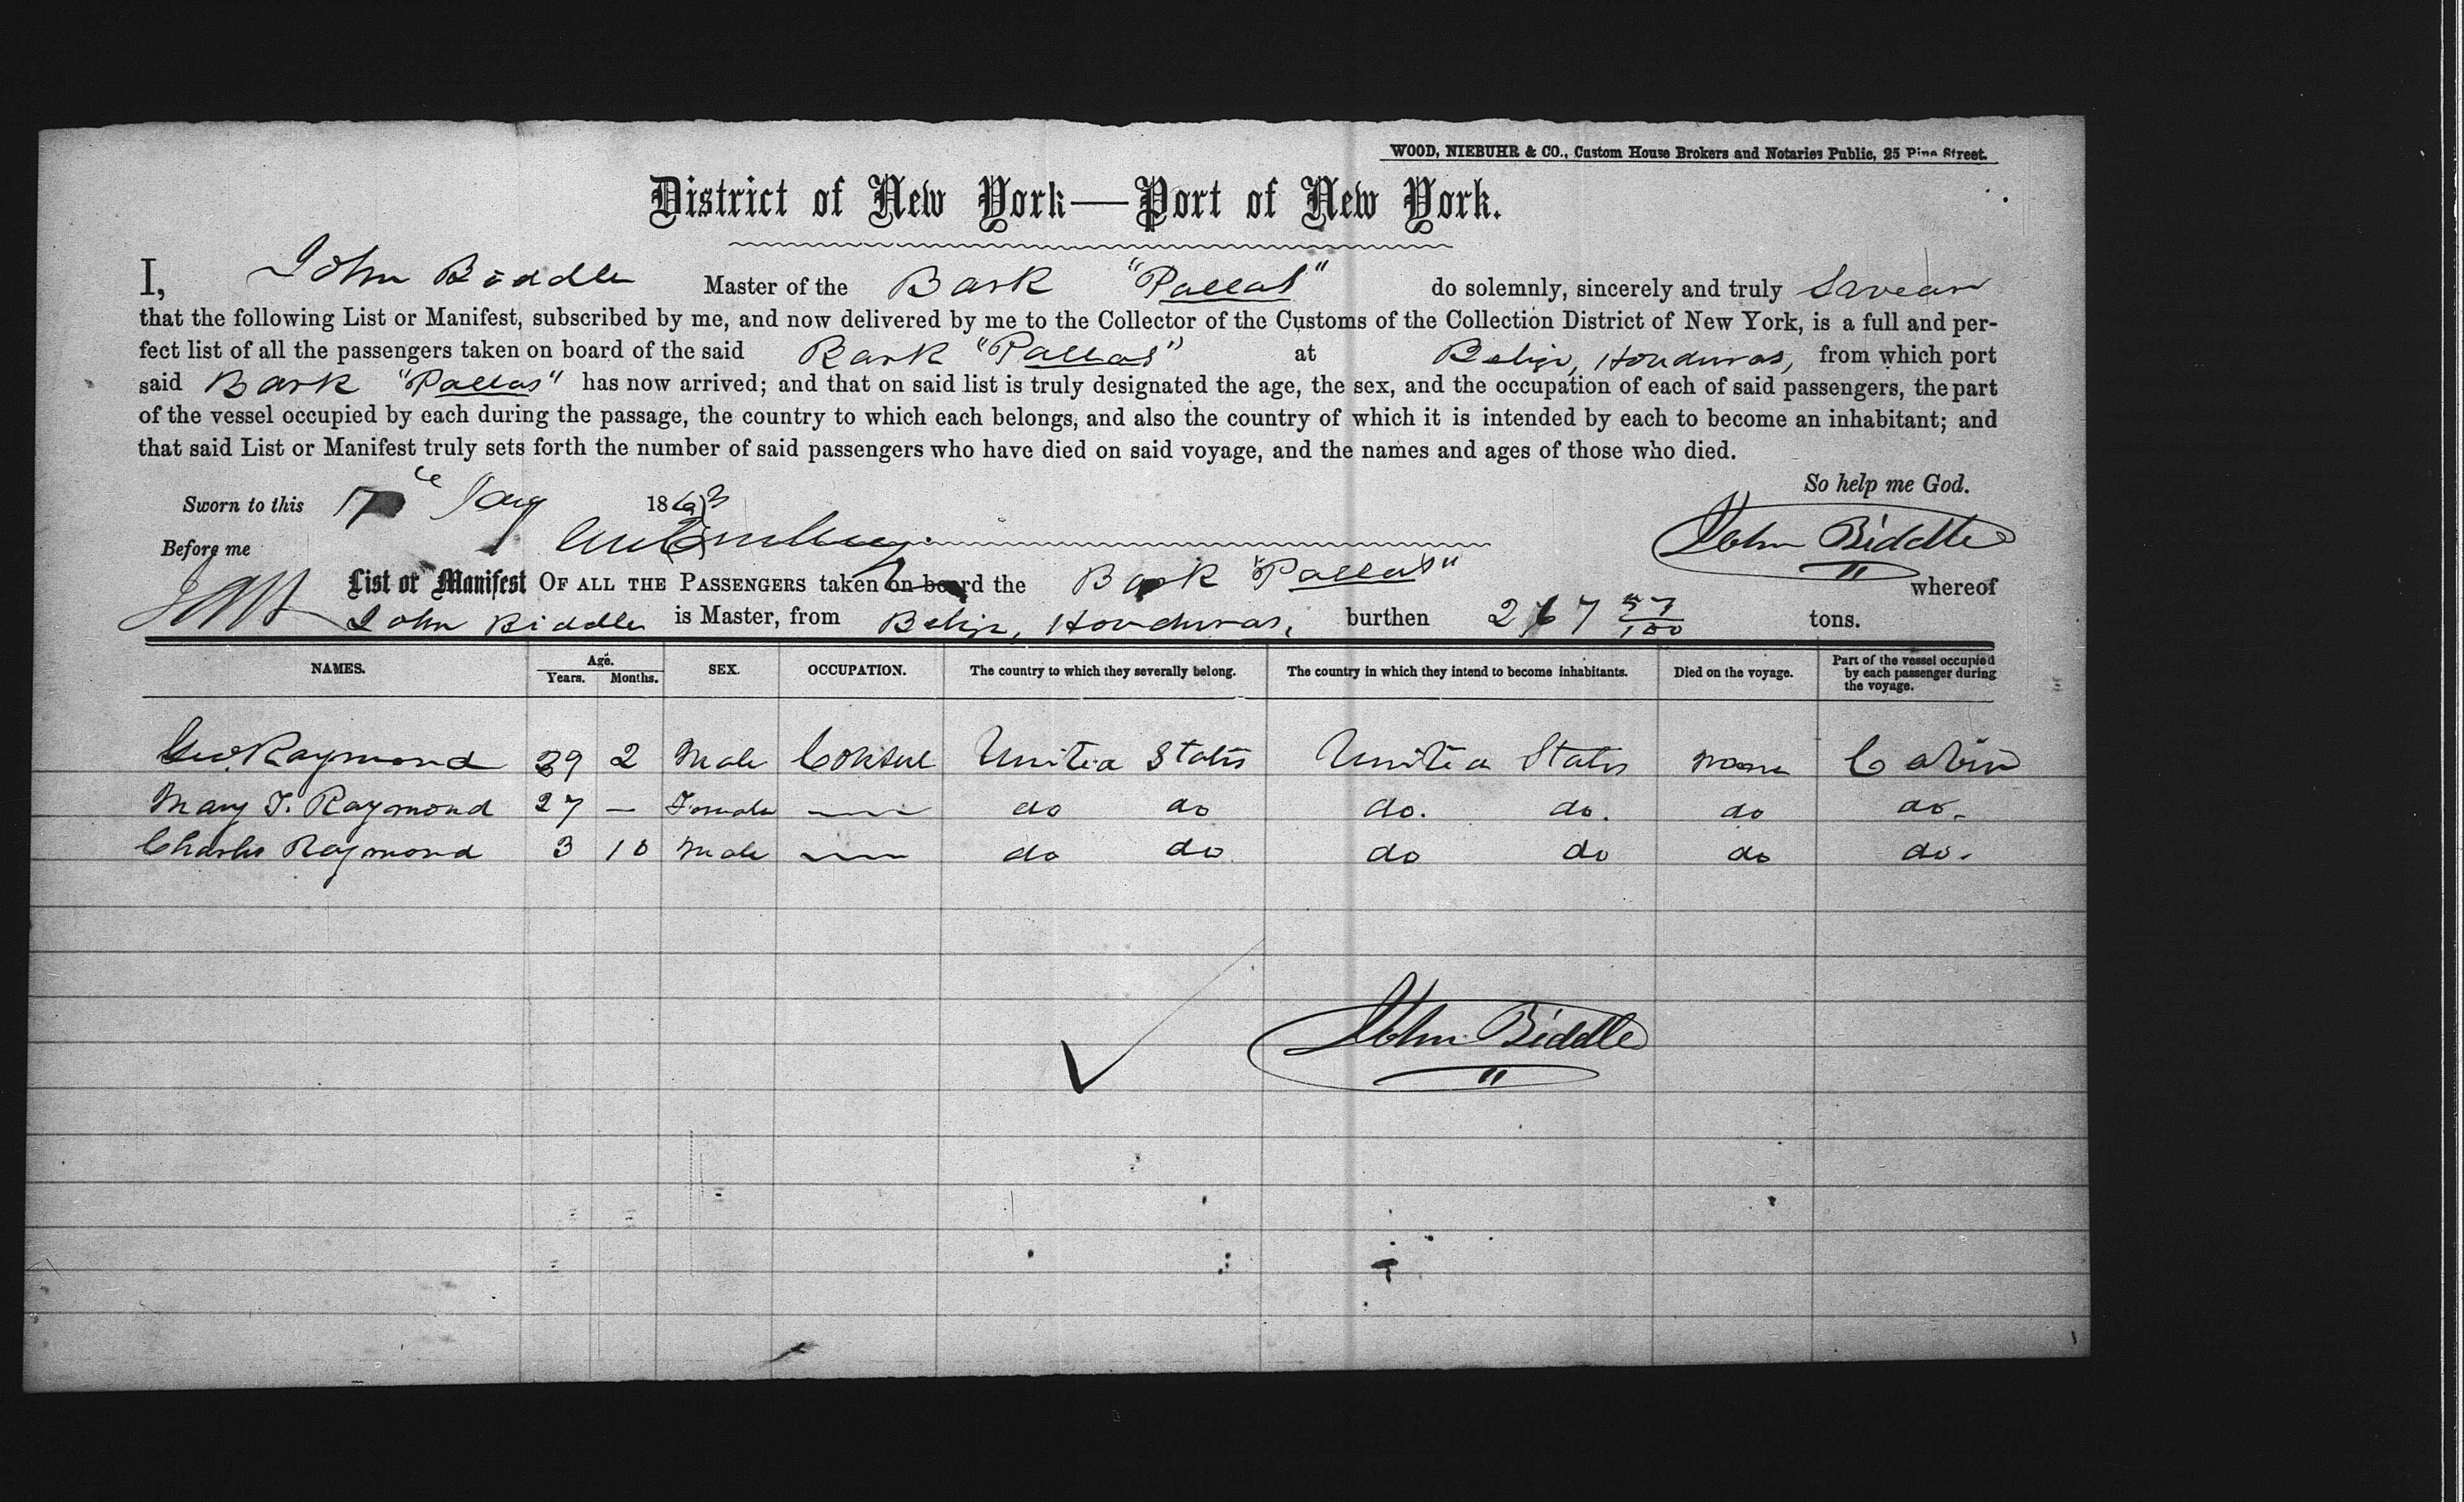 WOOD, NIEBUHR & CO., Custom House Brokers and Notaries Public, 25 Pine Street.
District of New York—Port of New York.
I, John Biddle Master of the Bark "Pallas" do solemnly, sincerely and truly Swear
that the following List or Manifest, subscribed by me, and now delivered by me to the Collector of the Customs of the Collection District of New York, is a full and per-
fect list of all the passengers taken on board of the said Bark "Pallas" at Belize, Honduras, from which port
said Bark "Pallas" has now arrived; and that on said list is truly designated the age, the sex, and the occupation of each of said passengers, the part
of the vessel occupied by each during the passage, the country to which each belongs, and also the country of which it is intended by each to become an inhabitant; and
that said List or Manifest truly sets forth the number of said passengers who have died on said voyage, and the names and ages of those who died.
So help me God.
Sworn to this 17 1863
Before me John Biddle
List or Manifest OF ALL THE PASSENGERS taken on board the Bark "Pallas" whereof
John Biddle is Master, from Belize, Honduras, burthen 267 57/100 tons.
NAMES. Age. Years. Months. SEX. OCCUPATION. The country to which they severally belong. The country in which they intend to become inhabitants. Died on the voyage. Part of the vessel occupied by each passenger during the voyage.
Geo. Raymond 39 2 Male Consul United States United States none Cabin
Mary T. Raymond 27 — Female —— do do do. do. do do.
Charles Raymond 3 10 Male —— do do do do do do.
John Biddle